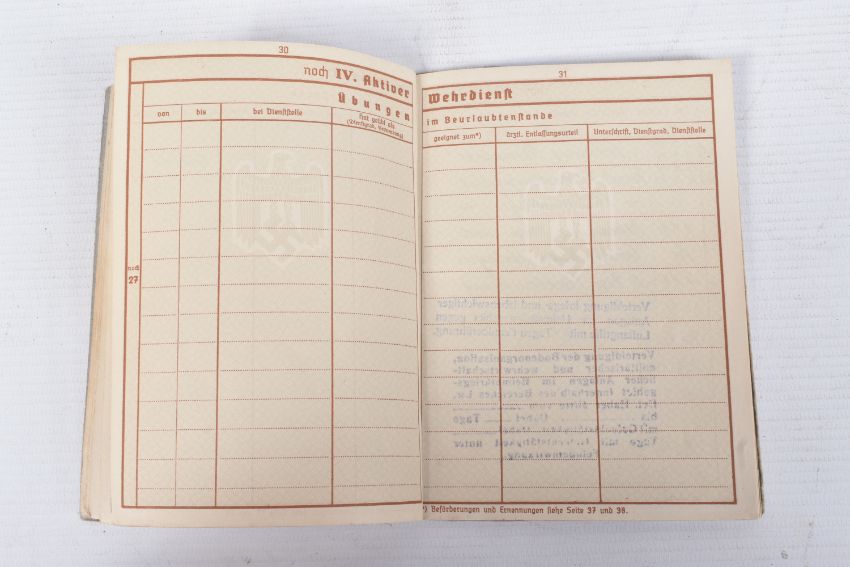 30
noch IV. Aktiver
Übungen
von
bis
bei Dienststelle
Hat geübt als
(Dienstgrad, Verwendung)
noch
27
31
Wehrdienst
im Beurlaubtenstande
geeignet zum*)
ärztl. Entlassungsurteil
Unterschrift, Dienstgrad, Dienststelle
Verteidigung
gegen
Luftangriffe mit Tagen
Verteidigung der Bodenorganisation,
militärischer und wehrwirtschaft-
licher Anlagen im Heimatkriegs-
gebiet innerhalb des Bereiches
bis Tage
mit
Tage mit unter
Feindeinwirkung.
*) Beförderungen und Ernennungen siehe Seite 37 und 38.